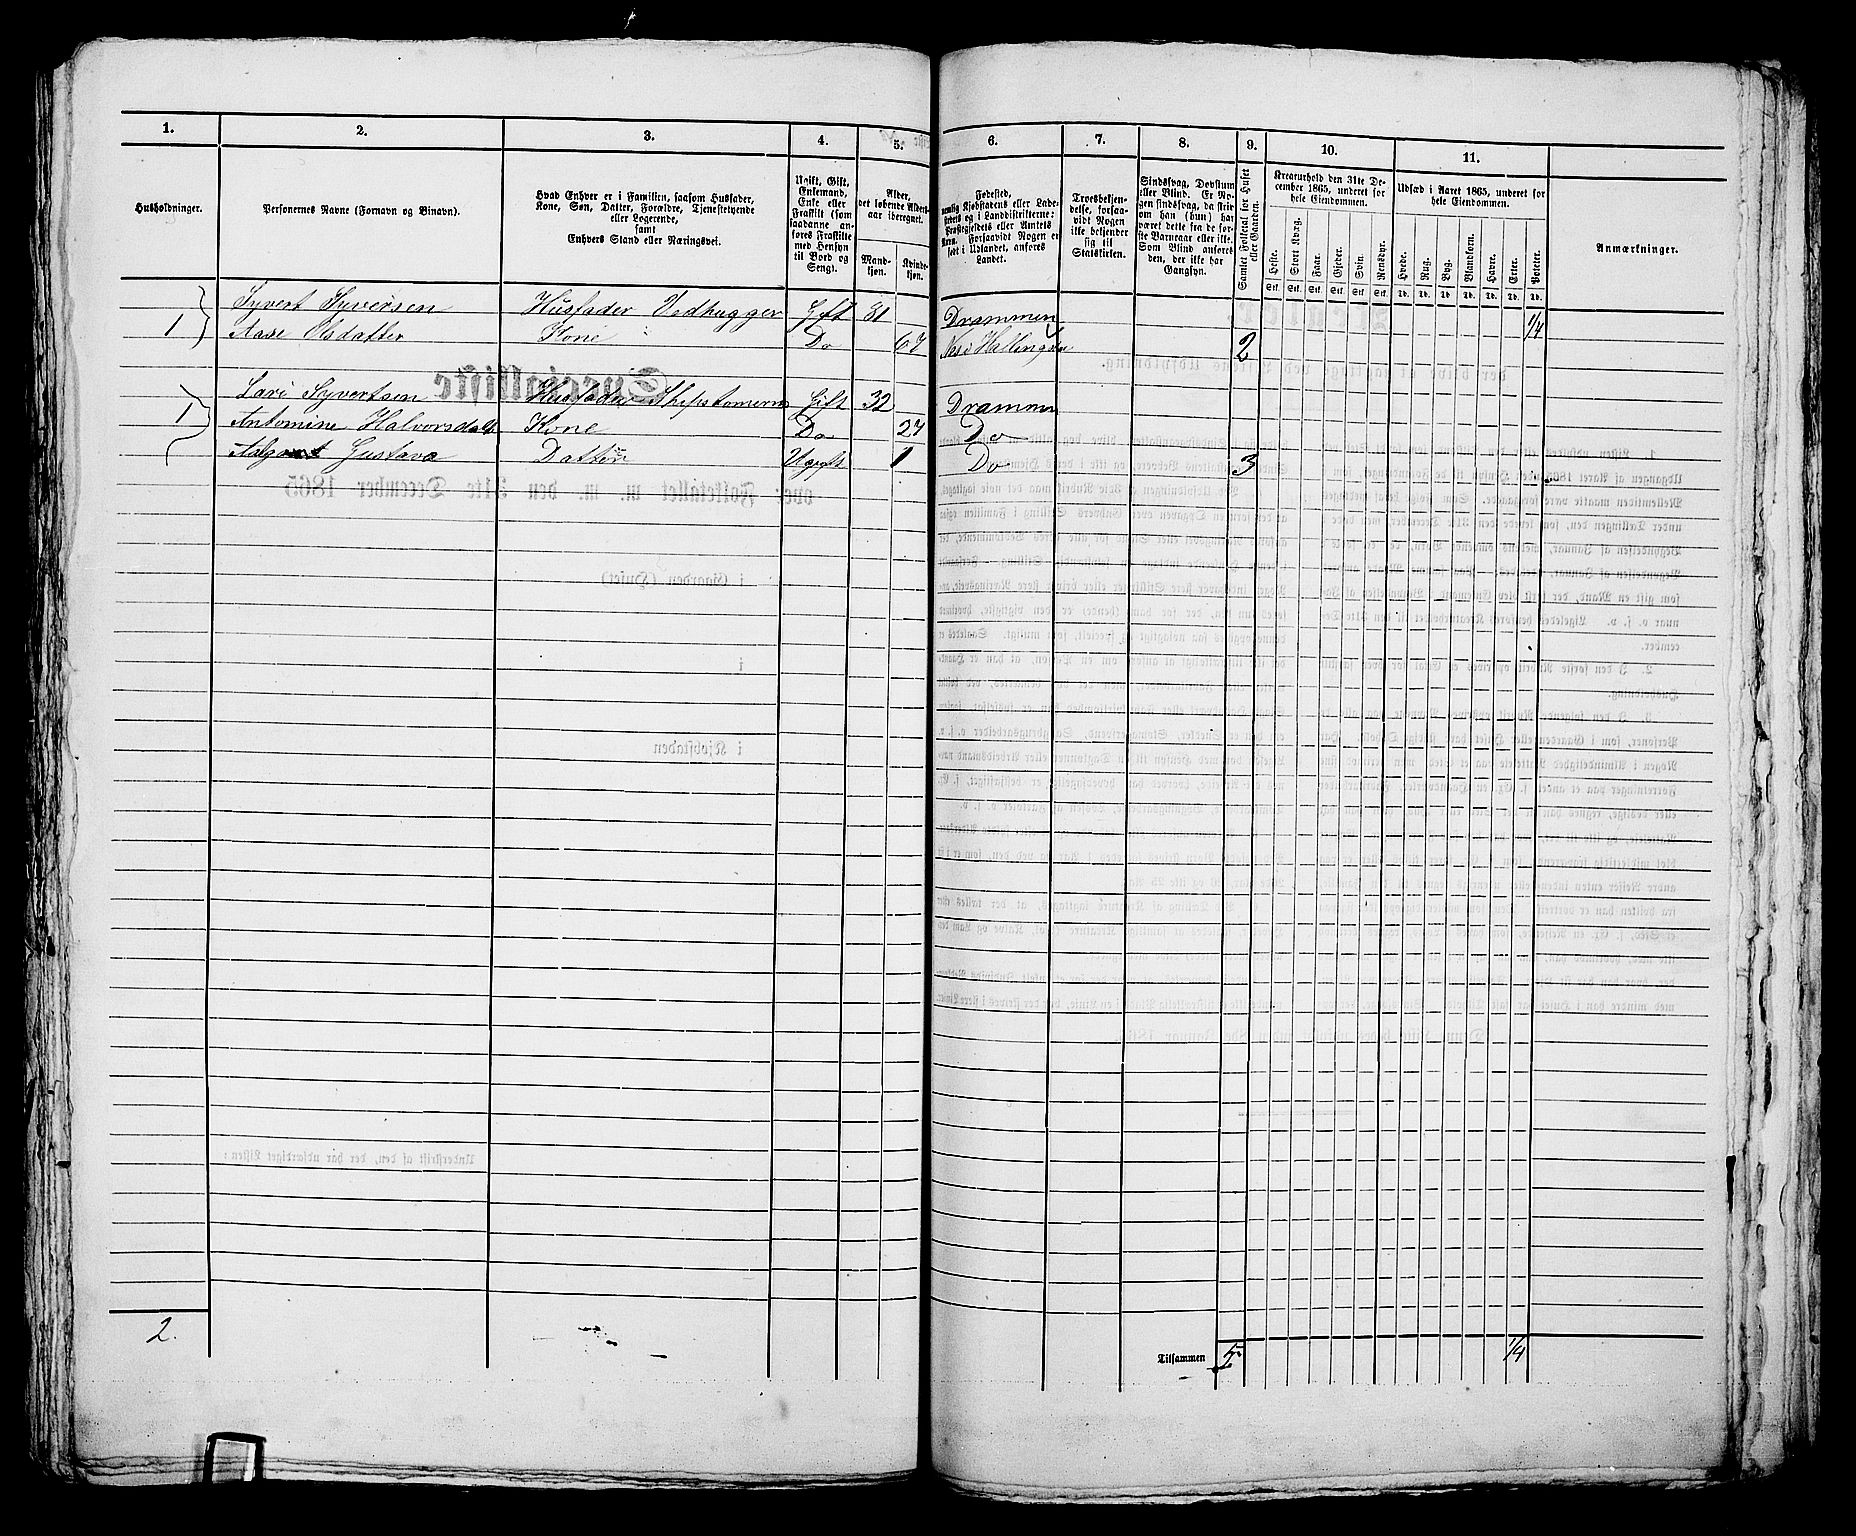 1. 2. 3. 4. 5. 6. 7. 8. 9. 10. 11.
Husholdninger.
Personernes Navne (Fornavn og Binavn).
Hvad Enhver er i Familien, saasom Husfader,
Kone, Søn, Datter, Forældre, Tjenestetyende
eller Logerende,
samt
Enhvers Stand eller Næringsvei.
Ugift, Gift,
Enkemand,
Enke eller
Fraskilt (som
saadanne an-
føres Fraskilte
med Hensyn
til Bord og
Seng).
Alder,
det løbende Alders-
aar iberegnet.
Mand-
kjøn.
Kvinde-
kjøn.
Fødested,
nemlig Kjøbstadens eller Lade-
stedets og i Landdistrikterne:
Præstegjeldets eller Amtets
Navn. Forsaavidt Nogen er
født i Udlandet, anføres
Landet.
Troesbekjen-
delse, forsaa-
vidt Nogen
ikke bekjender
sig til
Statskirken.
Sindssvag, Døvstum
eller Blind. Er No-
gen sindssvag, da skri-
ves om han (hun) har
været dette fra de før-
ste Barneaar eller ikke.
Som Blind anføres
den, der ikke har
Gangsyn.
Samlet Folketal for Huset
eller Gaarden.
Kreaturhold den 31te De-
cember 1865, underet for
hele Eiendommen.
Heste. Stort Kvæg. Faar. Gjeder. Svin. Rensdyr.
Stk. Stk. Stk. Stk. Stk. Stk.
Udsæd i Aaret 1865, underet for
hele Eiendommen.
Hvede. Rug. Byg. Blandkorn. Havre. Erter. Poteter.
Td. Td. Td. Td. Td. Td. Td.
Anmærkninger.
1 Syvert Syversen Husfader Vedhugger Gift 81 Drammen 1/4
Aase Olsdatter Kone Do 67 Nes i Hallingdal 2
1 Syvertsen Husfader Gift 32 Drammen
Antomine Halvorsdatt Kone Do 27 Do
Gustava Datter Ugift 1 Do 3
2.
Tilsammen 5 1/4